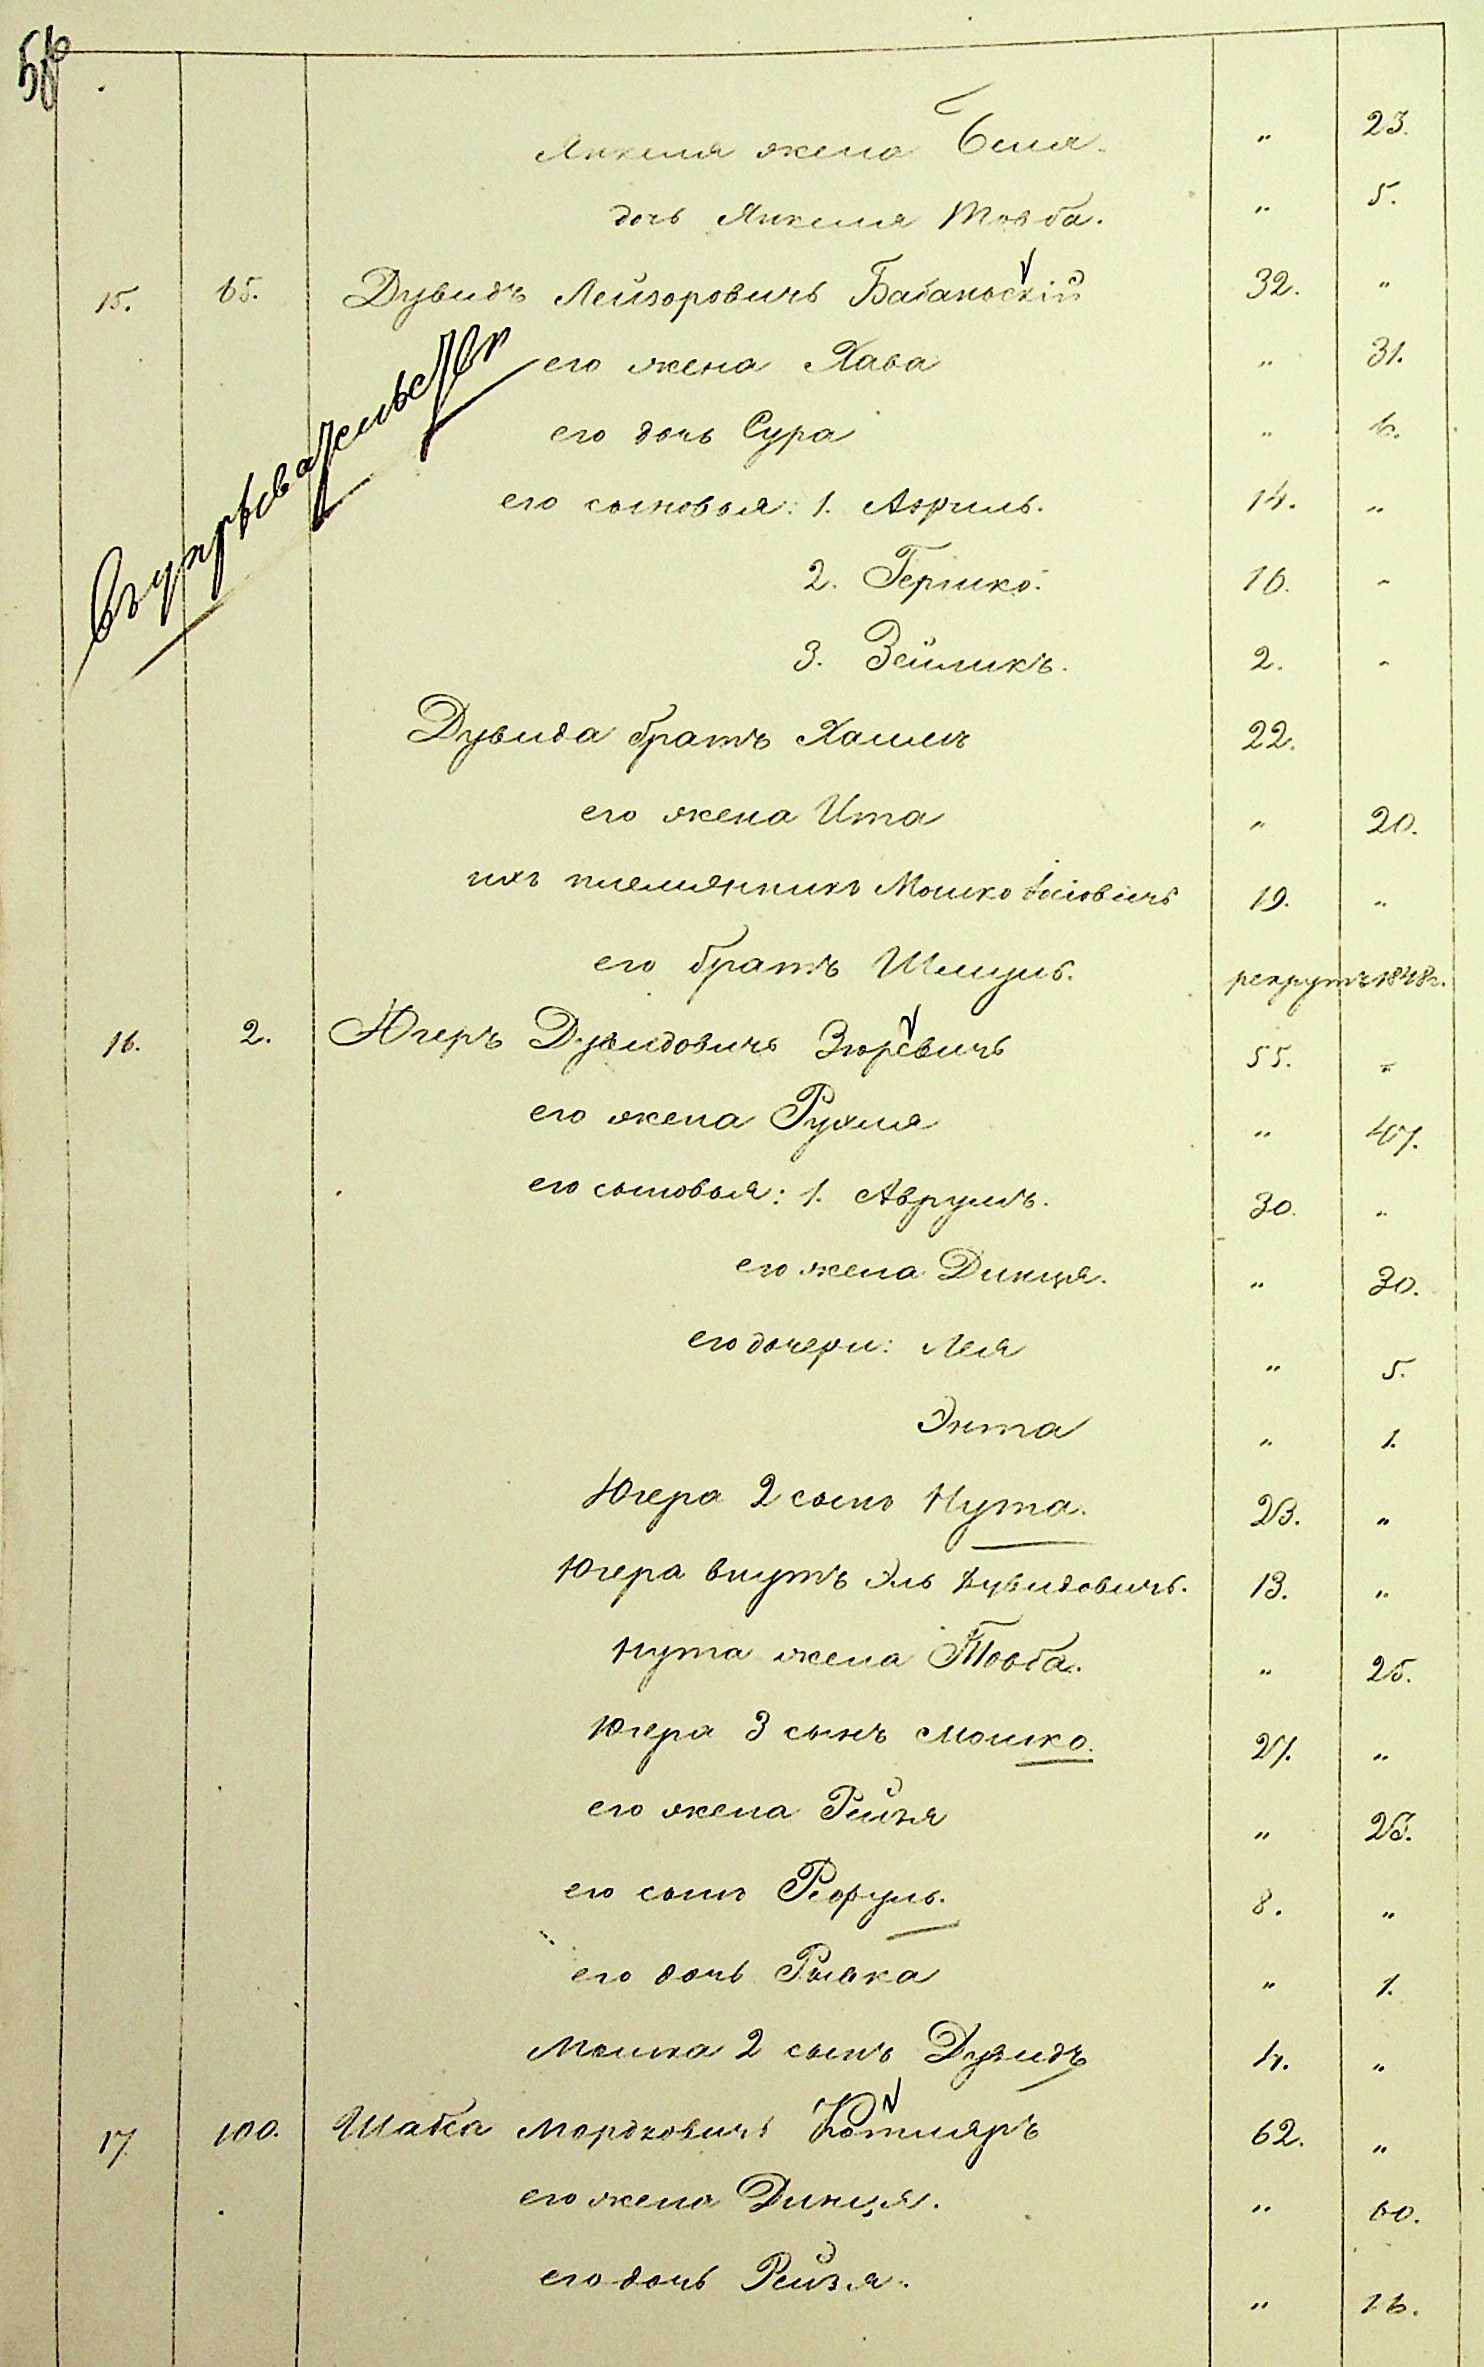 Янкеля жена Бейля. " 23.
дочь Янкеля Товба. " 5.
15. 65. Дувидъ Лейзоровичъ Бабанскій 32. "
его жена Хава " 31.
его дочь Сура " 6.
его сыновья: 1. Аврумъ. 14. "
2. Гершко. 10. "
3. Зейликъ. 2. "
Дувида братъ Хаимъ 22.
его жена Ита " 20.
ихъ племянникъ Мошко 19. "
его братъ Шмуль. рекрутъ 1848г.
16. 2. Югеръ Дувидовичъ 55. "
его жена Рухля " 47.
его сыновья: 1. Аврумъ. 30. "
его жена Динця. " 30.
его дочери: Лея " 5.
Энта " 1.
Югера 2 сынъ Нута. 23. "
Югера внукъ Эль Дувидовичъ. 13. "
Нута жена Товба. " 25.
Югера 3 сынъ Мошко. 27. "
его жена Рейзя " 25.
его сынъ Рефуль. 8. "
его дочь Рывка " 1.
Мошка 2 сынъ Дувидъ 4. "
17 100. Шабса Мордковичъ Котляръ 62. "
его жена Динця. " 60.
его дочь Рейзя. " 16.